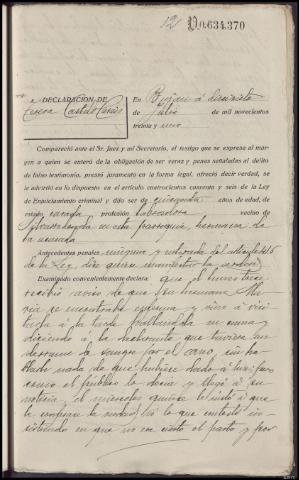 12
D.0.634.370
DECLARACIÓN DE
Teresa Castelo
En Buján a diecisiete
de Julio de mil novecientos
treinta y uno
Compareció ante el Sr. Juez y mi Secretario, el testigo que se expresa al mar-
gen a quien se enteró de la obligación de ser veraz y penas señaladas al delito
de falso testimonio, prestó juramento en la forma legal, ofreció decir verdad, se
le advirtió de lo dispuesto en el artículo cuatrocientos cuarenta y seis de la Ley
de Enjuiciamiento criminal y dijo ser de cincuenta años de edad, de
estado casada profesión labradora vecino de
en esta parroquia, hermana de
la acusada
Antecedentes penales ninguno y enterada del artículo 416
de la Ley dijo quiere manifestar la verdad
Examinado convenientemente declara: que el miercoles
recibió aviso de que su hermana Ma-
ria se encontraba enferma y vino a visi-
tarla a la tarde hallandola en cama
diciendo a la declarante que tuviera un
derrame de sangre por el cano, sin ha-
blarle nada de que hubiese dado a luz; pero
como el público lo decia y llegó a su
noticia, el miercoles quince la instó a que
le dijese la verdad, a lo que contestó in-
sistiendo en que no era cierto el parto y por